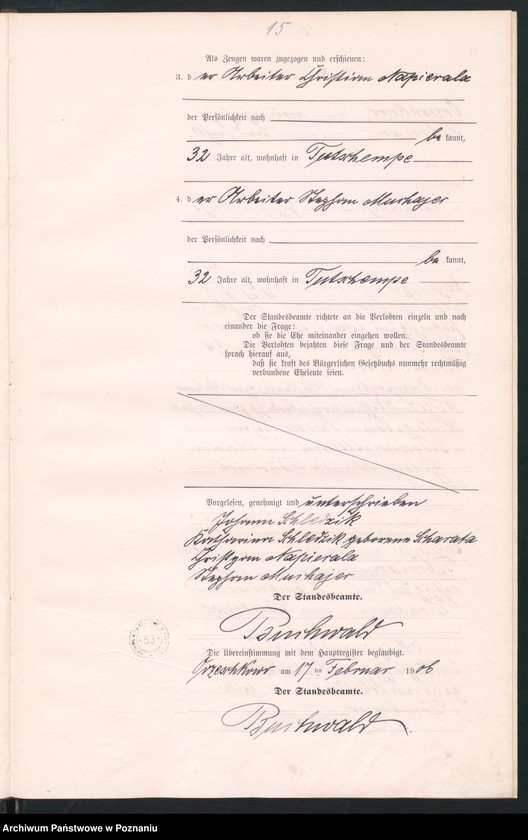 15
Als Zeugen waren zugezogen und erschienen:
3. der Arbeiter Christian Napierala
der Persönlichkeit nach
be kannt,
32 Jahre alt, wohnhaft in Tutschempe
4. der Arbeiter Stephan Muchajer
der Persönlichkeit nach
be kannt,
32 Jahre alt, wohnhaft in Tutschempe
Der Standesbeamte richtete an die Verlobten einzeln und nach
einander die Frage:
ob sie die Ehe miteinander eingehen wollen.
Die Verlobten bejahten diese Frage und der Standesbeamte
sprach hierauf aus,
daß sie kraft des Bürgerlichen Gesetzbuchs nunmehr rechtmäßig
verbundene Eheleute seien.
Vorgelesen, genehmigt und unterschrieben
Johann Schledzik
Katharina Schledzik geborene Skarata
Napierala
Stephan Muchajer
Der Standesbeamte.
Buchwald
Die Übereinstimmung mit dem Hauptregister beglaubigt.
Orzeschkowo am 17 ten Februar 1906
Der Standesbeamte.
Buchwald
53
Archiwum Państwowe w Poznaniu